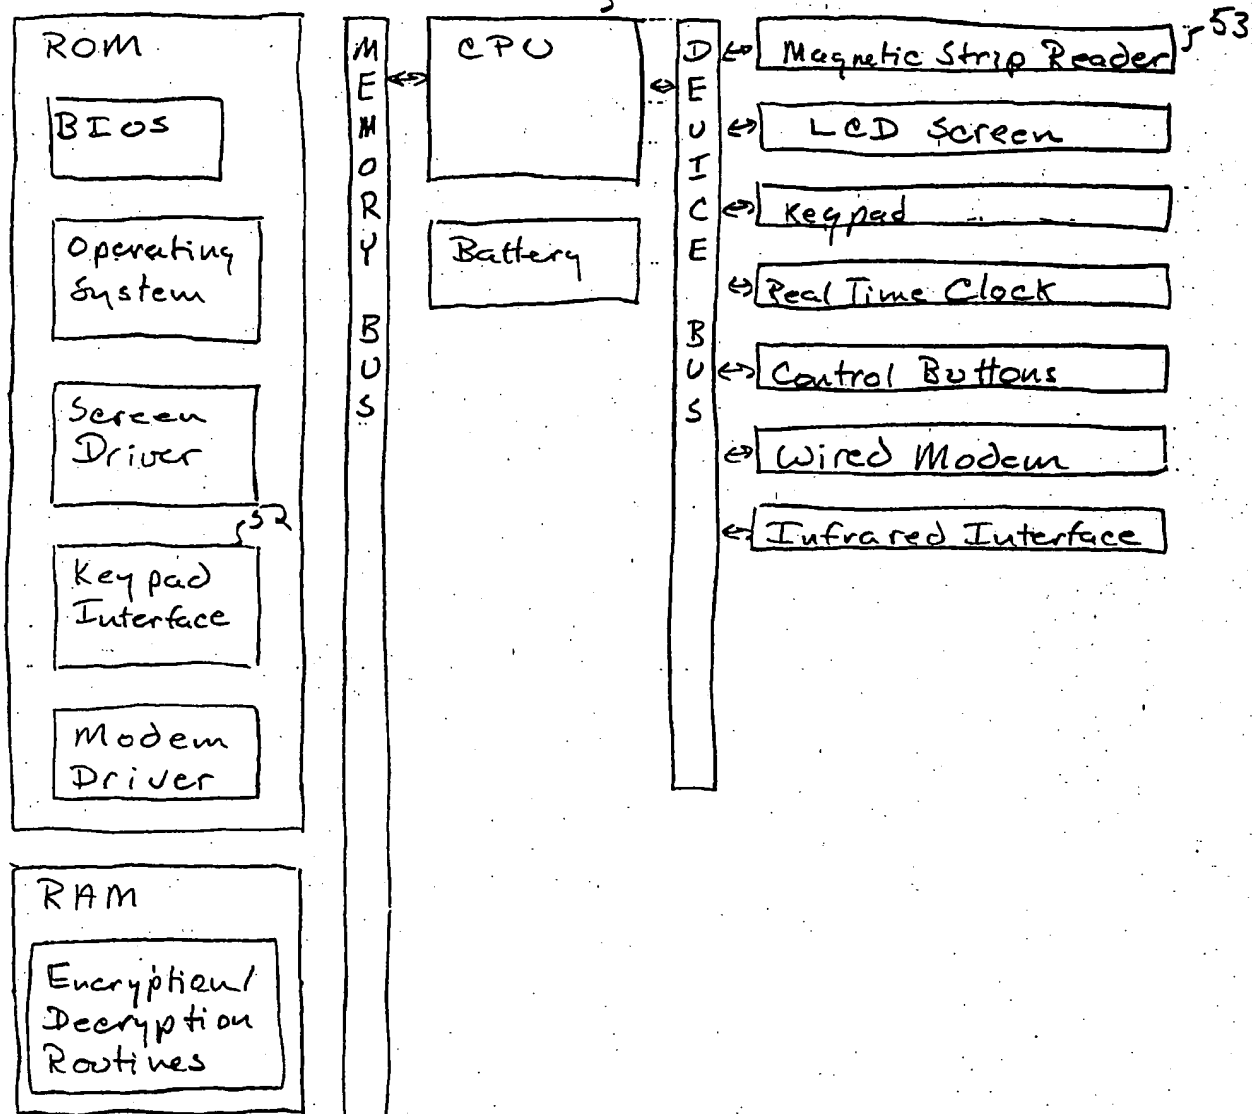 ROM
BIOS
Operating
System
Screen
Driver
52
Keypad
Interface
Modem
Driver
RAM
Encryption/
Decryption
Routines
MEMORY BUS
CPU
Battery
DEVICE BUS
53
Magnetic Strip Reader
LCD Screen
Keypad
Real Time Clock
Control Buttons
Wired Modem
Infrared Interface